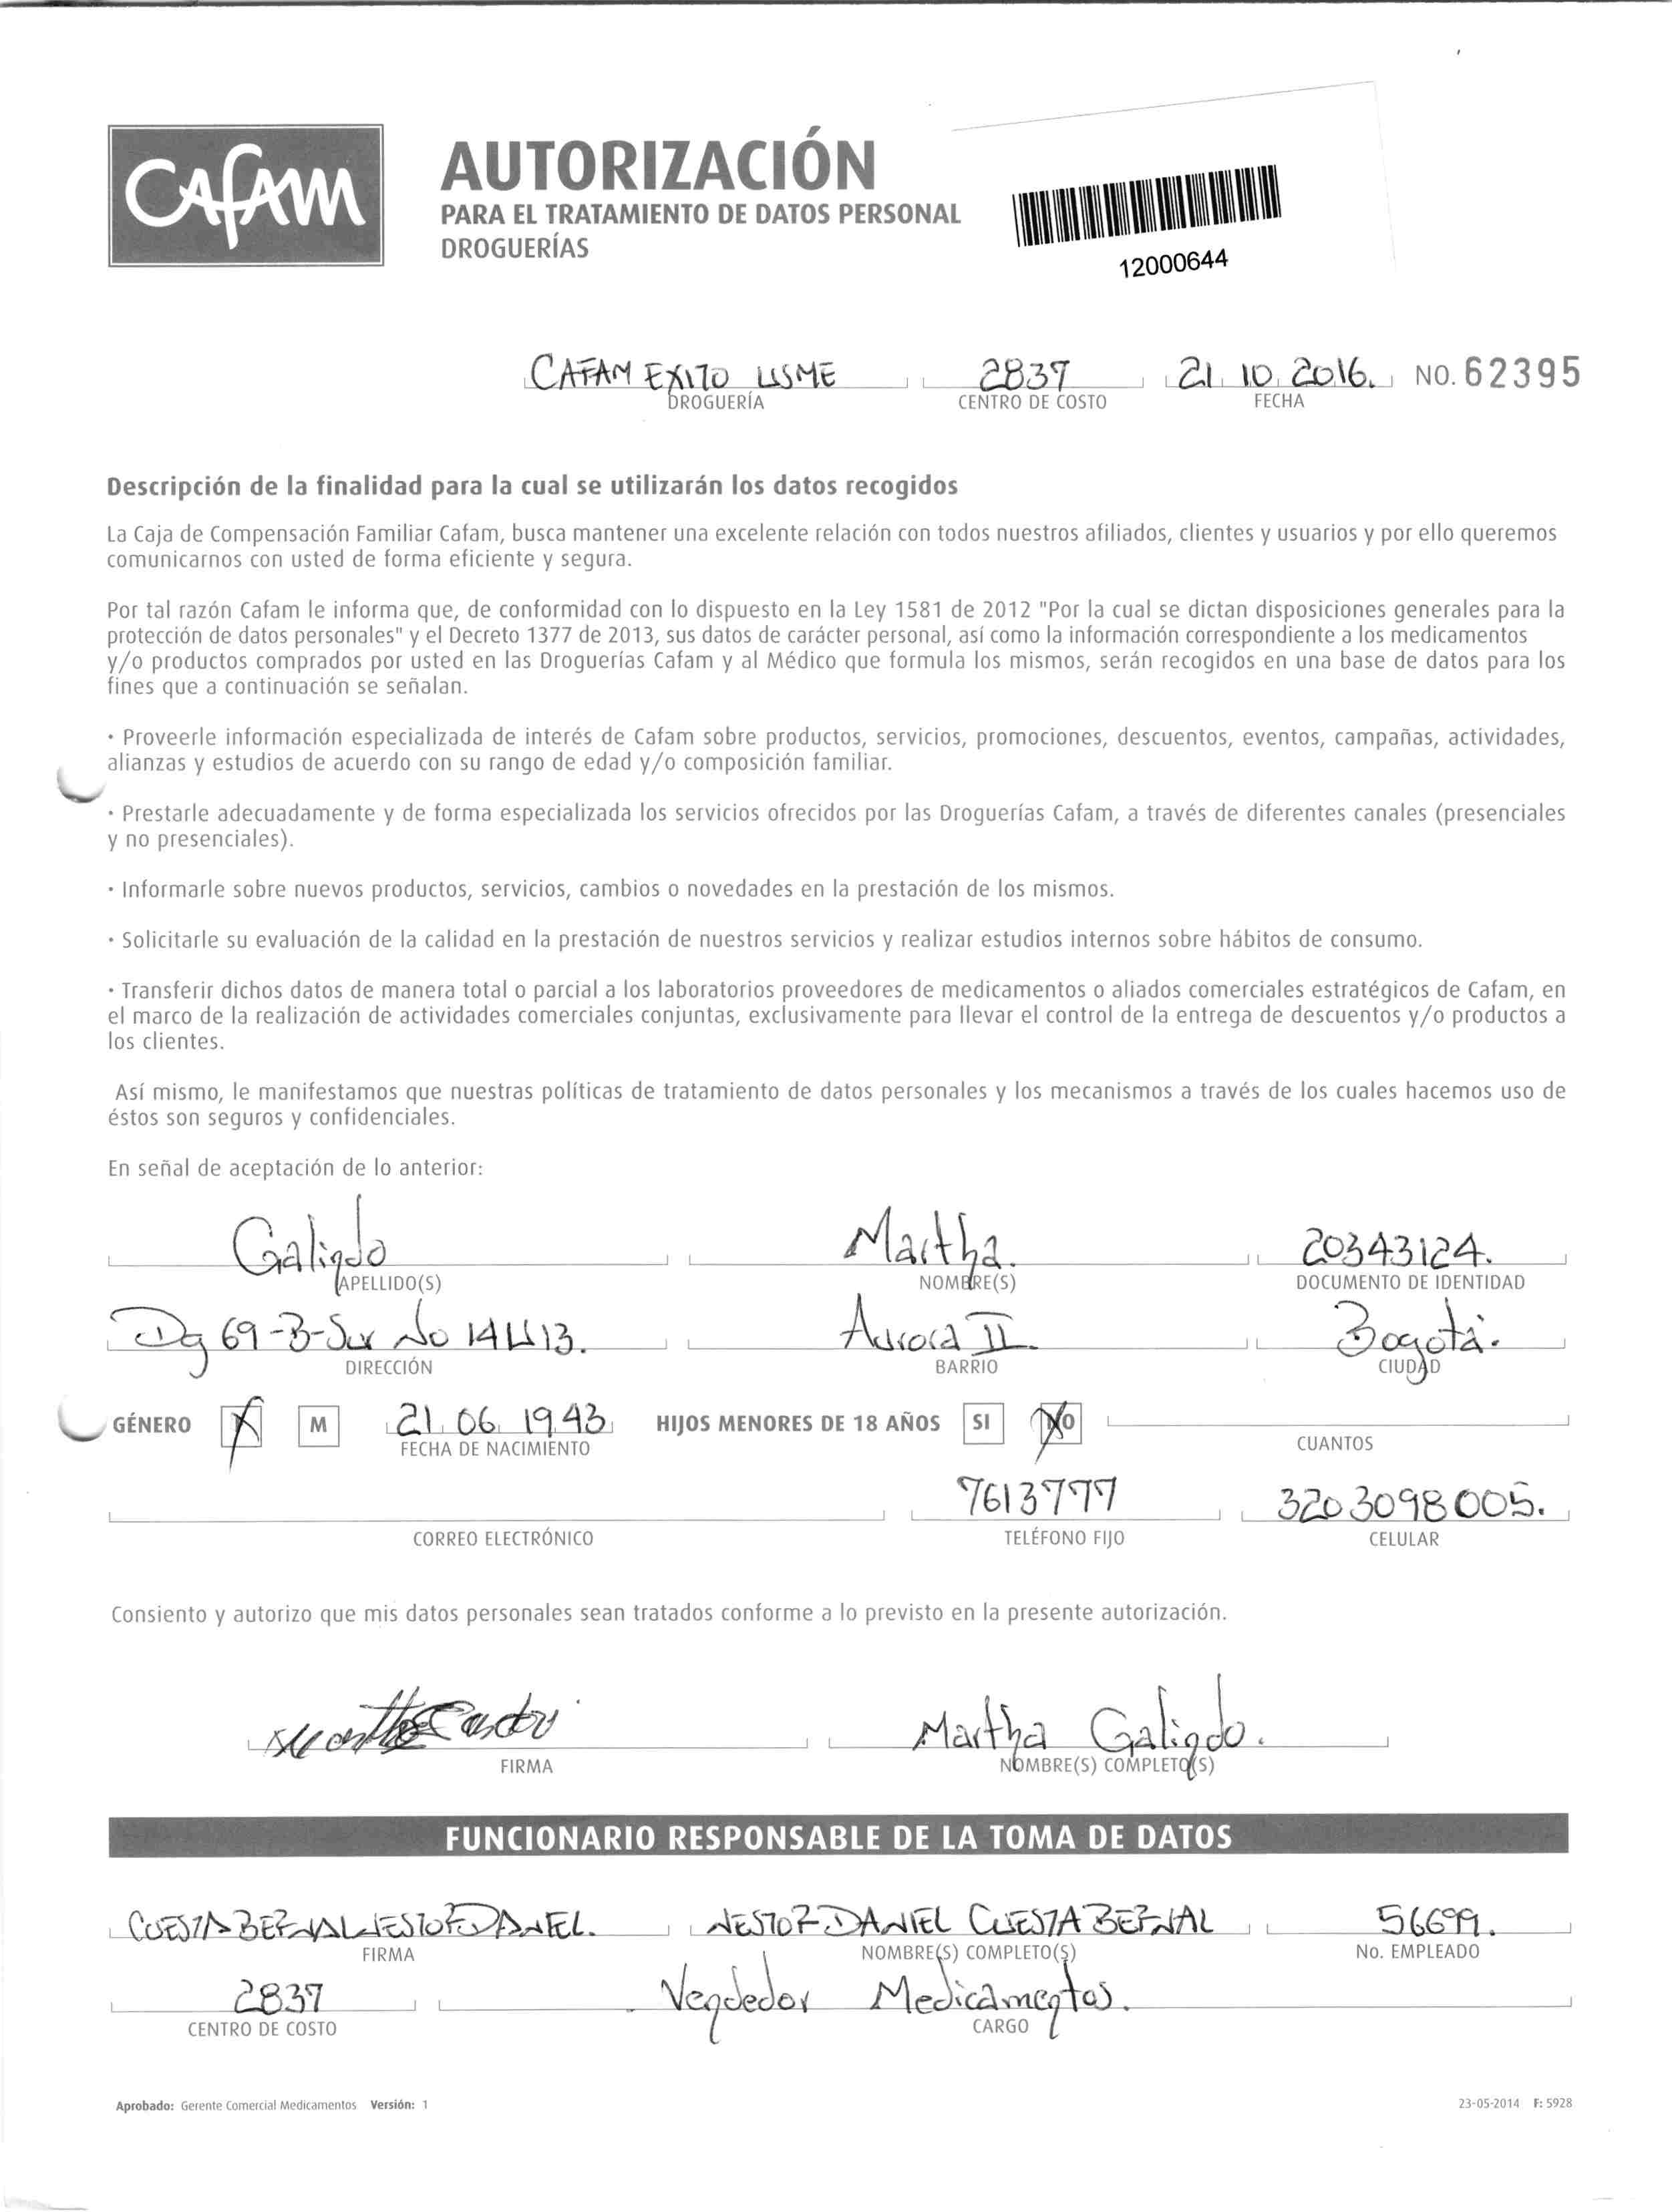 CAFAM
AUTORIZACIÓN
PARA EL TRATAMIENTO DE DATOS PERSONAL
DROGUERÍAS
12000644
CAFAM EXITO USME 2837 21 10 2016. NO. 62395
DROGUERÍA CENTRO DE COSTO FECHA
Descripción de la finalidad para la cual se utilizarán los datos recogidos
La Caja de Compensación Familiar Cafam, busca mantener una excelente relación con todos nuestros afiliados, clientes y usuarios y por ello queremos
comunicarnos con usted de forma eficiente y segura.
Por tal razón Cafam le informa que, de conformidad con lo dispuesto en la Ley 1581 de 2012 "Por la cual se dictan disposiciones generales para la
protección de datos personales" y el Decreto 1377 de 2013, sus datos de carácter personal, así como la información correspondiente a los medicamentos
y/o productos comprados por usted en las Droguerías Cafam y al Médico que formula los mismos, serán recogidos en una base de datos para los
fines que a continuación se señalan.
• Proveerle información especializada de interés de Cafam sobre productos, servicios, promociones, descuentos, eventos, campañas, actividades,
alianzas y estudios de acuerdo con su rango de edad y/o composición familiar.
• Prestarle adecuadamente y de forma especializada los servicios ofrecidos por las Droguerías Cafam, a través de diferentes canales (presenciales
y no presenciales).
• Informarle sobre nuevos productos, servicios, cambios o novedades en la prestación de los mismos.
• Solicitarle su evaluación de la calidad en la prestación de nuestros servicios y realizar estudios internos sobre hábitos de consumo.
• Transferir dichos datos de manera total o parcial a los laboratorios proveedores de medicamentos o aliados comerciales estratégicos de Cafam, en
el marco de la realización de actividades comerciales conjuntas, exclusivamente para llevar el control de la entrega de descuentos y/o productos a
los clientes.
Así mismo, le manifestamos que nuestras políticas de tratamiento de datos personales y los mecanismos a través de los cuales hacemos uso de
éstos son seguros y confidenciales.
En señal de aceptación de lo anterior:
Galindo Martha. 20343124.
APELLIDO(S) NOMBRE(S) DOCUMENTO DE IDENTIDAD
Dg 69-B-Sur No 14U13. Aurora II. Bogotá.
DIRECCIÓN BARRIO CIUDAD
GÉNERO M 21 06 1943 HIJOS MENORES DE 18 AÑOS SI NO
FECHA DE NACIMIENTO CUANTOS
7613777 3203098005.
CORREO ELECTRÓNICO TELÉFONO FIJO CELULAR
Consiento y autorizo que mis datos personales sean tratados conforme a lo previsto en la presente autorización.
Martha Galindo.
FIRMA NOMBRE(S) COMPLETO(S)
FUNCIONARIO RESPONSABLE DE LA TOMA DE DATOS
CUESTA BERNAL NESTOR DANIEL. NESTOR DANIEL CUESTA BERNAL 56699.
FIRMA NOMBRE(S) COMPLETO(S) No. EMPLEADO
2837 Vendedor Medicamentos.
CENTRO DE COSTO CARGO
Aprobado: Gerente Comercial Medicamentos Versión: 1 23-05-2014 F: 5928